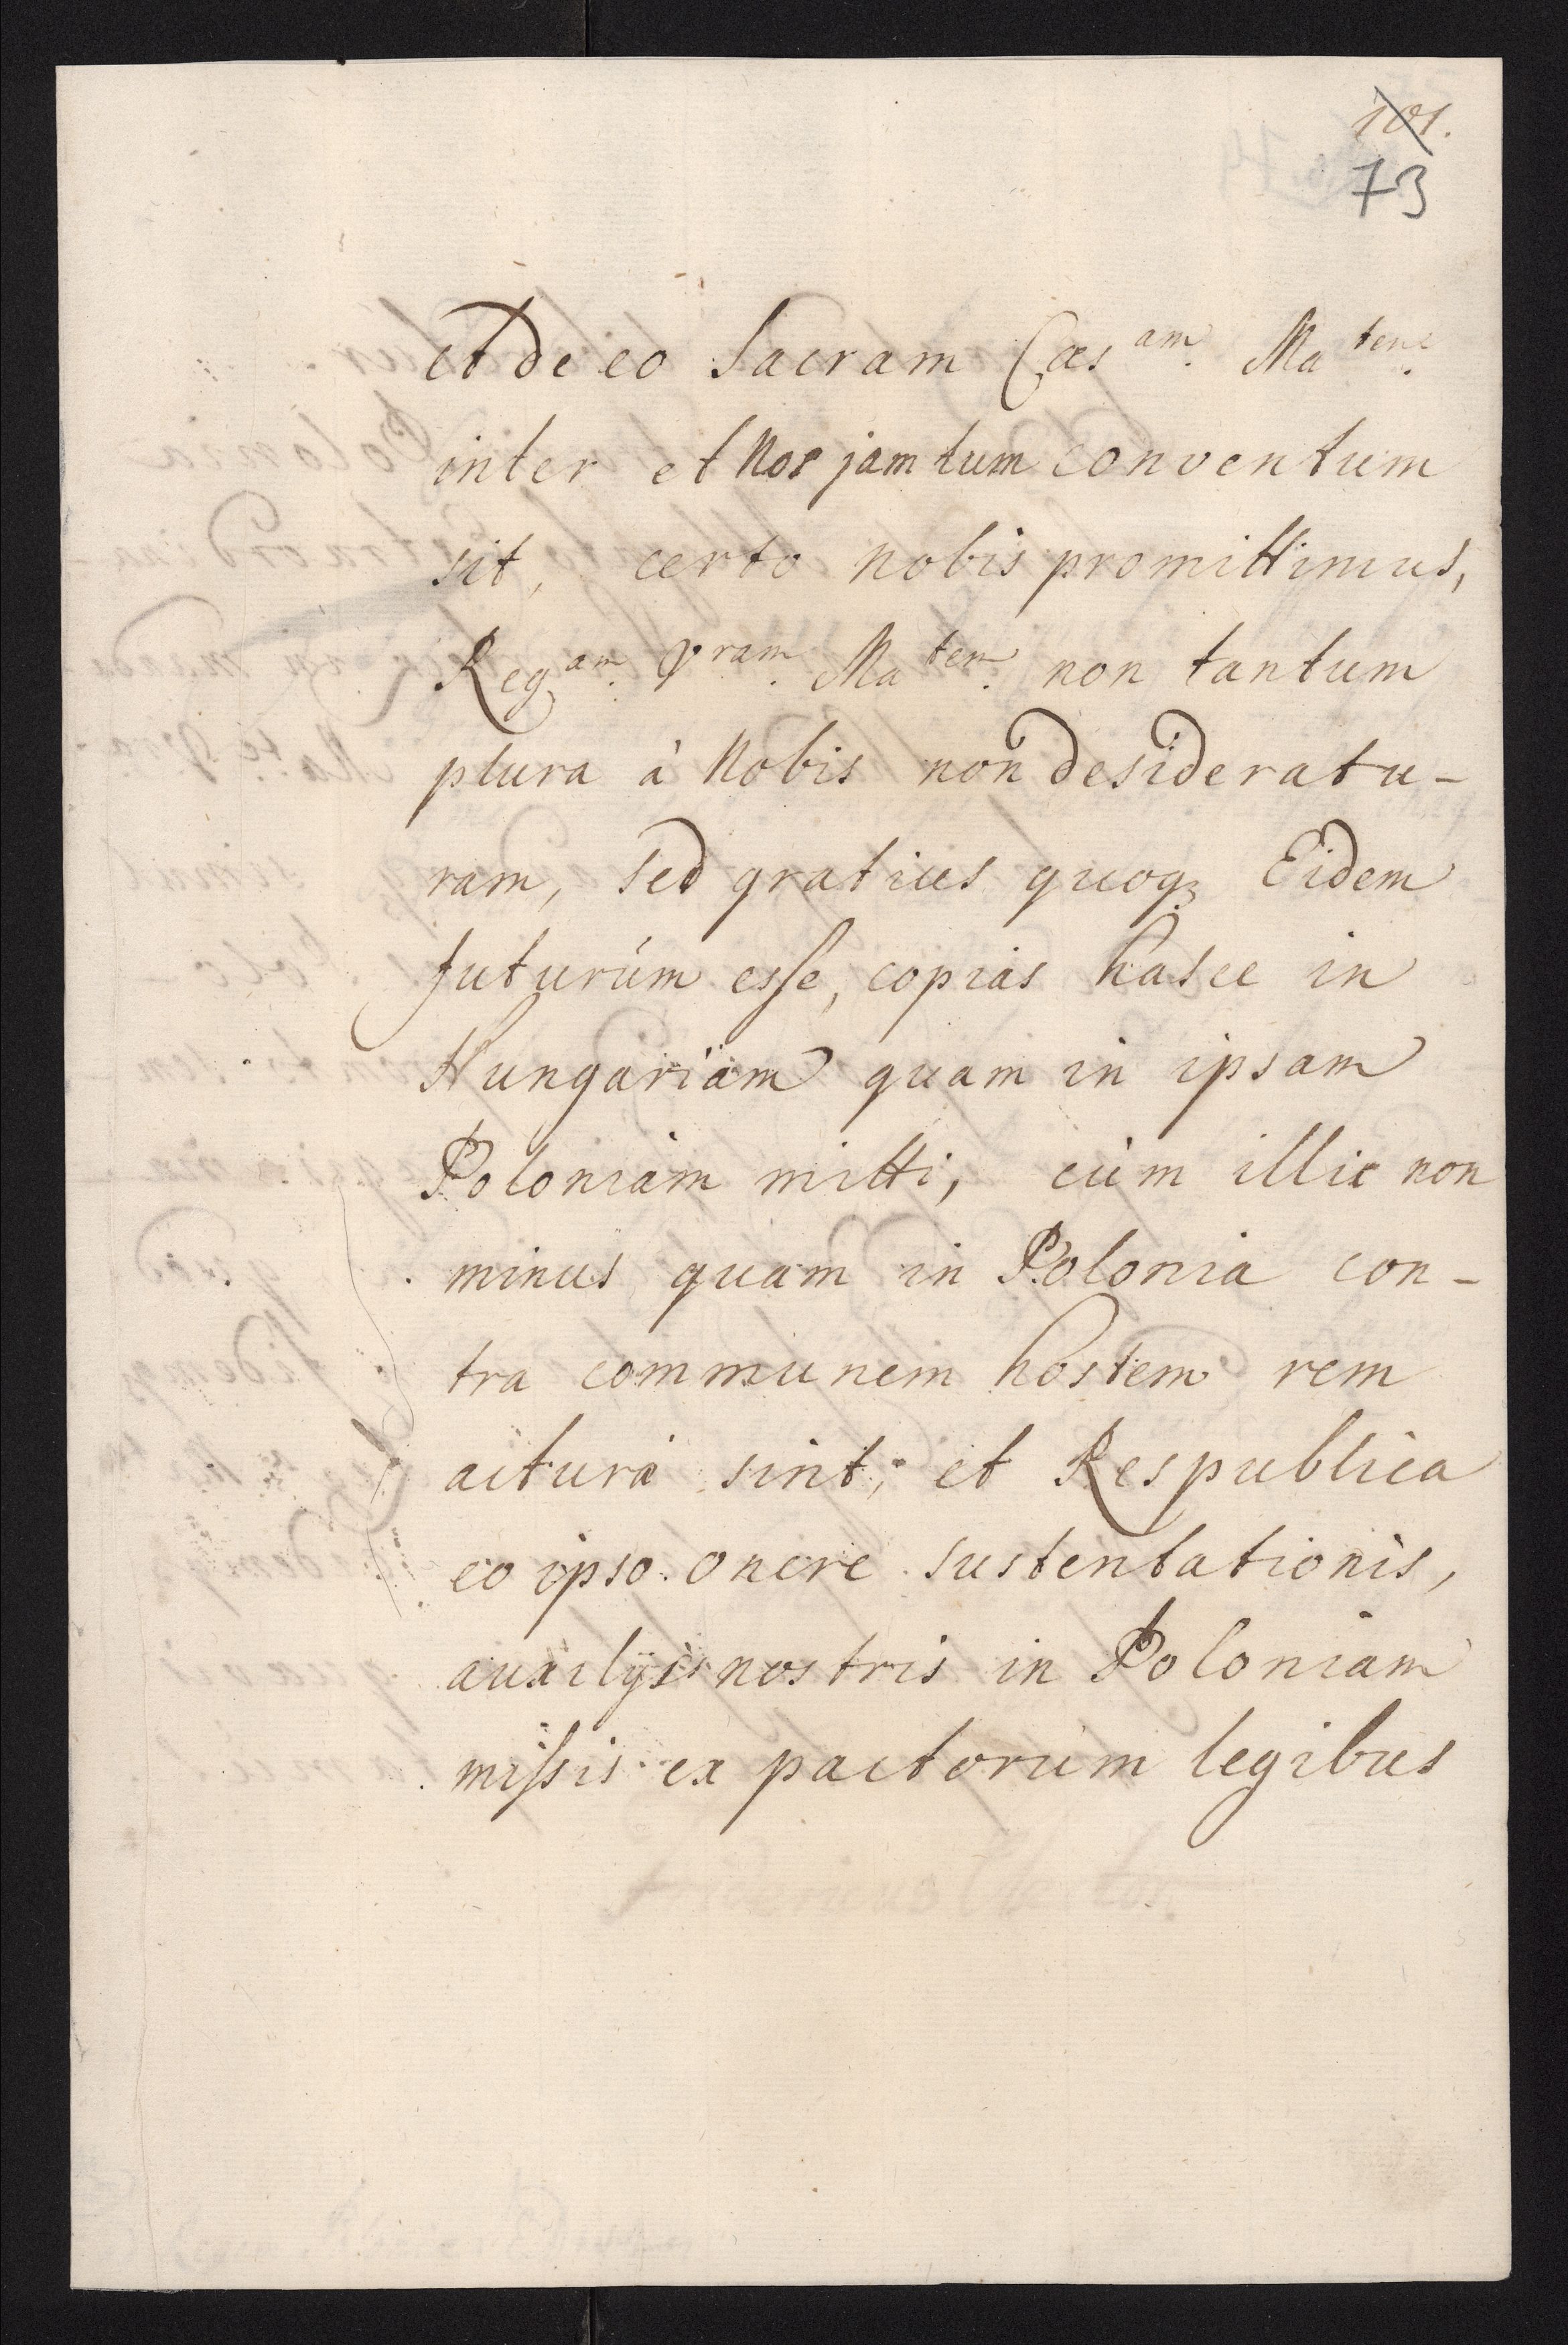 101.
73
et de eo Sacram Cæs^am. Ma^tem.
inter et Nos jam tum conventum
sit, certo nobis promittimus,
Reg^am. V^ram. Ma^tem. non tantum
plura à Nobis non desideratu-
ram, sed gratius quoq3 Eidem
futurúm esse, copias hasce in
Hungariam quam in ipsam
Poloniam mitti, cùm illic non
minus quam in Polonia con-
tra communem hostem rem
acturà sint, et Respublica
eo ipso onere sustentationis,
auxilÿs nostris in Poloniam
missis ex pactorúm legibus